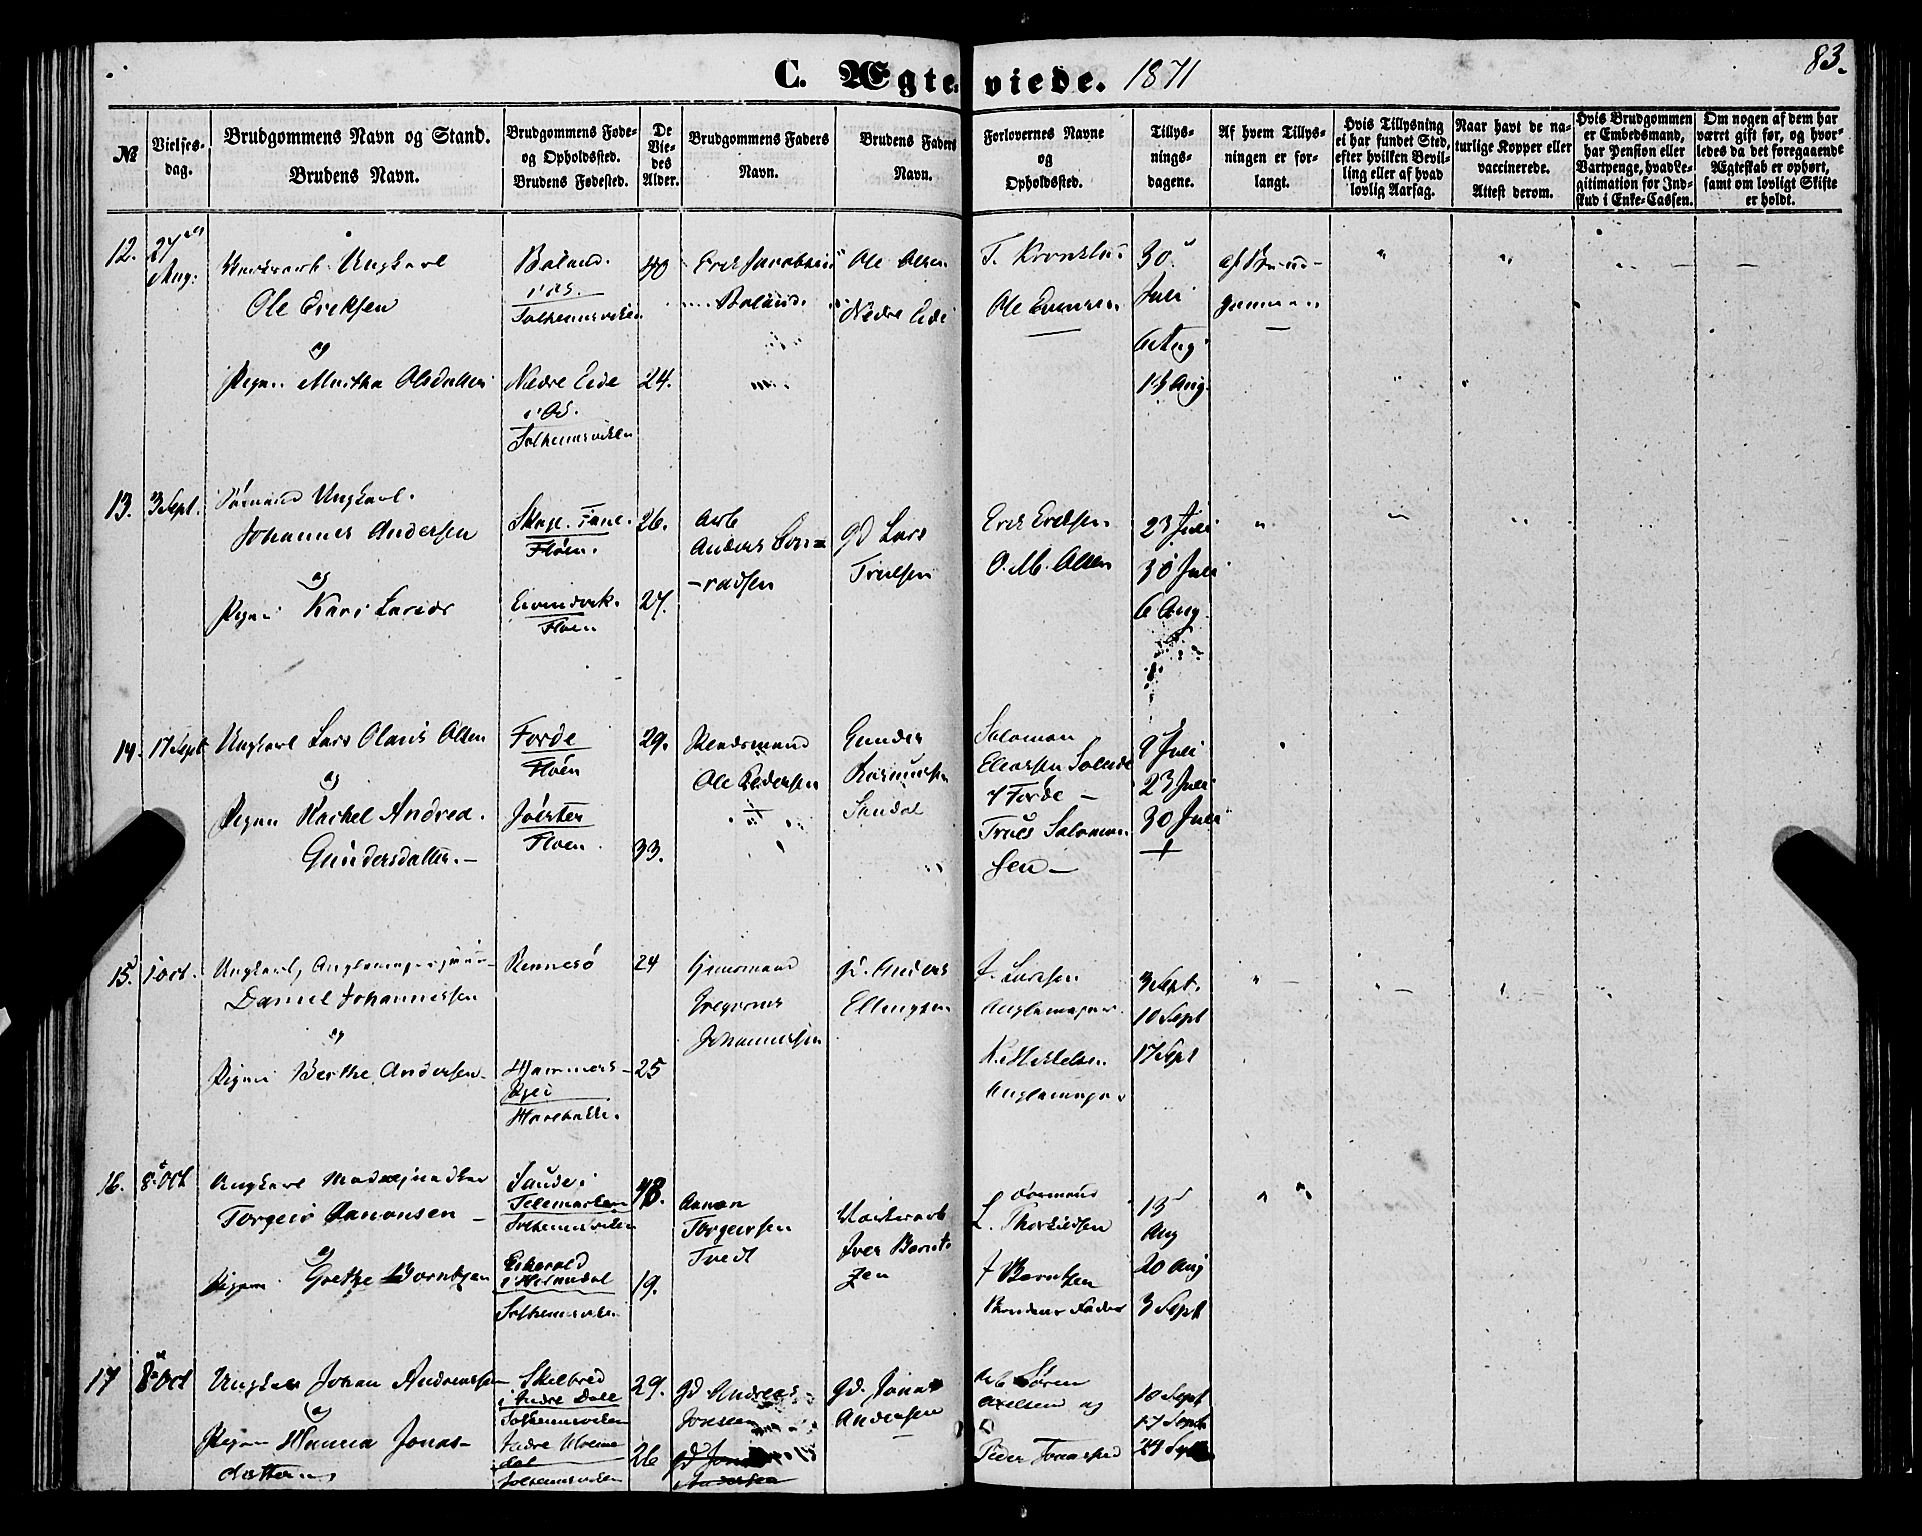 83.
C. Ægteviede. 1871
№
Vielses-
dag.
Brudgommens Navn og Stand.
Brudens Navn.
Brudgommens Føde-
og Opholdssted.
Brudens Fødested.
De
Vie-
des
Alder.
Brudgommens Faders
Navn.
Brudens Faders
Navn.
Forlovernes Navne
og
Opholdssted.
Tillys-
nings-
dagene.
Af hvem Tillys-
ningen er for-
langt.
Hvis Tillysning
ei har fundet Sted,
efter hvilken Bevil-
ling eller af hvad
lovlig Aarsag.
Naar havt de na-
turlige Kopper eller
vaccinerede.
Attest derom.
Hvis Brudgommen
er Embedsmand,
har Pension eller
Vartpenge, hvad Le-
gitimation for Ind-
skud i Enke-Cassen.
Om nogen af dem har
været gift før, og hvor-
ledes da det foregaaende
Ægteskab er ophørt,
samt om lovligt Skifte
er holdt.
12.
27
Aug:
Ungkarl
Ole Eriksen
og
Pigen Martha Olsdatter
Boland
i Os.
Solhemsviken
Nedre Eide
i Os.
Solhemsviken
40
24.
Erik Jacobsen
Boland
Ole Olsen
Nedre Eide
Ole
30
Juli
6 Aug
13 Aug.
13.
3 Sept.
Ungkarl.
Johannes Andersen
og
Pigen Kari Larsdr
Skage. Fane.
Floen.
Eivindvik.
Floen
26.
27.
Arb
Anders Con-
-radsen
Gd Lars
Truelsen
Erik Eriksen
O. M. Olsen
23 Juli
30 Juli
6 Aug
14.
17 Sept
Ungkarl Lars Olaus Olsen
og
Pigen Rachel Andrea
Gundersdatter.-
Førde
Floen
Jølster
Floen
29.
33.
Pladsmand
Ole Pedersen
Gunder
Rasmussen
Sandal
Salomon
Eliassen Solende
i Førde -
Trues Salomon
sen -
9 Juli
23 Juli
30 Juli
15.
1 Oct.
Ungkarl,
Daniel Johannessen
og
Pigen Berthe Andersen
Rennesø
Hammers-
Haraballe.
24
25
Huusmand
Johannessen
Gd. Anders
Ellingsen
J. Larsen
K. Mikkelsen
3 Sept.
10 Sept
17 Sept
16.
8 Oct
Ungkarl
Torgeir Aanonsen -
og
Pigen Grethe Berntzen
Saude i
Telemarken
Solhemsviken
i Holmedal
Solhemsviken
48.
19.
Aanon
Torgersen
Tvedt
Iver Bernt-
zen
Formand
L. Thorkildsen
J Berntzen
Brudens Fader
13
Aug
20 Aug
3 Sept
17
8 Oct
Ungkarl Johan Andreassen
og
Pigen Hanna Jonas-
datter
Skilbred
i Indre Dale
Solhemsviken
Indre Holme
dal
Solhemsviken
29.
26
Gd Andreas
Jonsen
Gd Jonas
Andersen
Gd. Jonas
Andersen
Arb Søren
Axelsen og
Peder
10 Sept
17 Sept
24 Sept